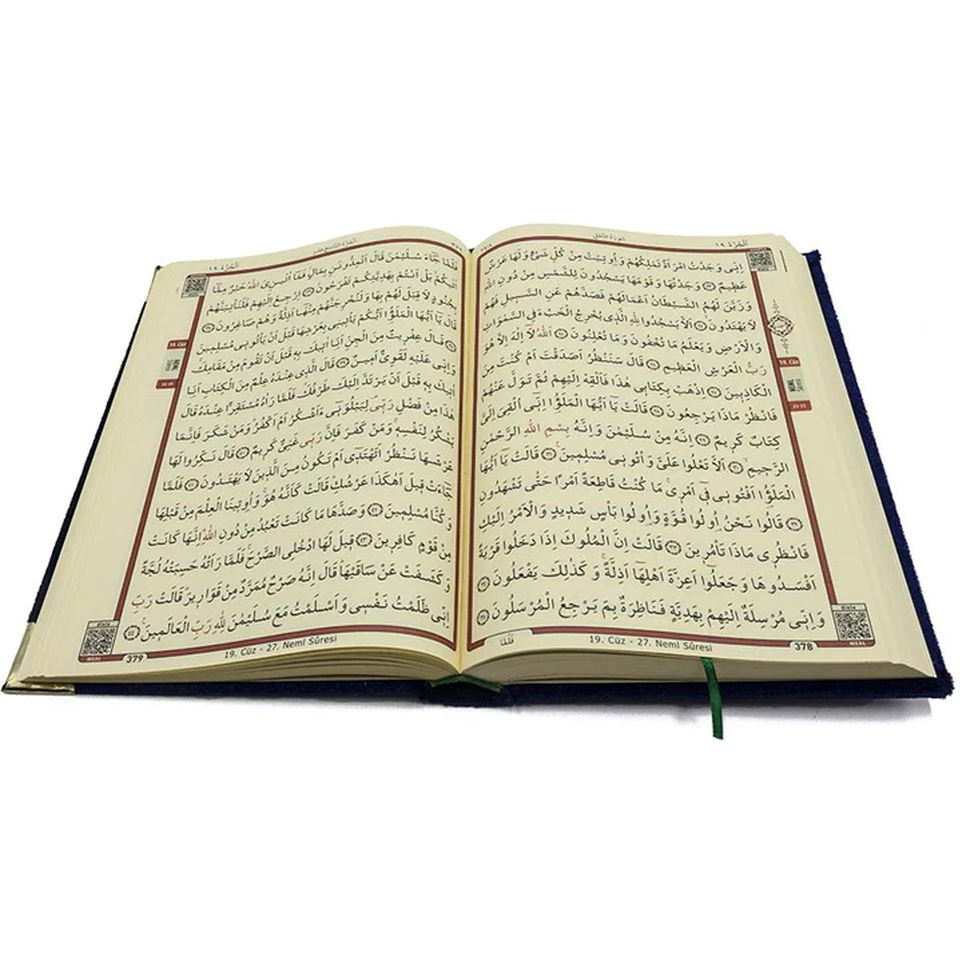 اَلْجُزْءُ ١٩
سُورَةُ النَّمْلِ
اِنّٖى وَجَدْتُ امْرَاَةً تَمْلِكُهُمْ وَاُو۫تِيَتْ مِنْ كُلِّ شَىْءٍ وَلَهَا عَرْشٌ
عَظٖيمٌ ﴿٢٣﴾ وَجَدْتُهَا وَقَوْمَهَا يَسْجُدُونَ لِلشَّمْسِ مِنْ دُونِ اللّٰهِ
وَزَيَّنَ لَهُمُ الشَّيْطَانُ اَعْمَالَهُمْ فَصَدَّهُمْ عَنِ السَّبٖيلِ فَهُمْ
لَا يَهْتَدُونَ ﴿٢٤﴾ اَلَّا يَسْجُدُوا لِلّٰهِ الَّذٖى يُخْرِجُ الْخَبْءَ فِى السَّمٰوَاتِ
وَالْاَرْضِ وَيَعْلَمُ مَا تُخْفُونَ وَمَا تُعْلِنُونَ ﴿٢٥﴾ اَللّٰهُ لَا اِلٰهَ اِلَّا هُوَ
رَبُّ الْعَرْشِ الْعَظٖيمِ ﴿٢٦﴾ قَالَ سَنَنْظُرُ اَصَدَقْتَ اَمْ كُنْتَ مِنَ
الْكَاذِبٖينَ ﴿٢٧﴾ اِذْهَبْ بِكِتَابٖى هٰذَا فَاَلْقِهْ اِلَيْهِمْ ثُمَّ تَوَلَّ عَنْهُمْ
فَانْظُرْ مَاذَا يَرْجِعُونَ ﴿٢٨﴾ قَالَتْ يَا اَيُّهَا الْمَلَؤُا اِنّٖى اُلْقِىَ اِلَىَّ
كِتَابٌ كَرٖيمٌ ﴿٢٩﴾ اِنَّهُ مِنْ سُلَيْمٰنَ وَاِنَّهُ بِسْمِ اللّٰهِ الرَّحْمٰنِ
الرَّحٖيمِ ﴿٣٠﴾ اَلَّا تَعْلُوا عَلَىَّ وَاْتُونٖى مُسْلِمٖينَ ﴿٣١﴾ قَالَتْ يَا اَيُّهَا
الْمَلَؤُا اَفْتُونٖى فٖى اَمْرٖى مَا كُنْتُ قَاطِعَةً اَمْرًا حَتّٰى تَشْهَدُونِ
﴿٣٢﴾ قَالُوا نَحْنُ اُولُوا قُوَّةٍ وَاُولُوا بَاْسٍ شَدٖيدٍ وَالْاَمْرُ اِلَيْكِ
فَانْظُرٖى مَاذَا تَاْمُرٖينَ ﴿٣٣﴾ قَالَتْ اِنَّ الْمُلُوكَ اِذَا دَخَلُوا قَرْيَةً
اَفْسَدُوهَا وَجَعَلُوا اَعِزَّةَ اَهْلِهَا اَذِلَّةً وَكَذٰلِكَ يَفْعَلُونَ ﴿٣٤﴾
وَاِنّٖى مُرْسِلَةٌ اِلَيْهِمْ بِهَدِيَّةٍ فَنَاظِرَةٌ بِمَ يَرْجِعُ الْمُرْسَلُونَ ﴿٣٥﴾
فَلَمَّا
19. Cüz - 27. Neml Sûresi
378
Dinle
MEAL
19. Cüz
اَلْجُزْءُ ١٩
فَلَمَّا جَاءَ سُلَيْمٰنَ قَالَ اَتُمِدُّونَنِ بِمَالٍ فَمَا اٰتٰينِىَ اللّٰهُ خَيْرٌ مِمَّا
اٰتٰيكُمْ بَلْ اَنْتُمْ بِهَدِيَّتِكُمْ تَفْرَحُونَ ﴿٣٦﴾ اِرْجِعْ اِلَيْهِمْ فَلَنَاْتِيَنَّهُمْ
بِجُنُودٍ لَا قِبَلَ لَهُمْ بِهَا وَلَنُخْرِجَنَّهُمْ مِنْهَا اَذِلَّةً وَهُمْ صَاغِرُونَ ﴿٣٧﴾
قَالَ يَا اَيُّهَا الْمَلَؤُا اَيُّكُمْ يَاْتٖينٖى بِعَرْشِهَا قَبْلَ اَنْ يَاْتُونٖى مُسْلِمٖينَ
﴿٣٨﴾ قَالَ عِفْرٖيتٌ مِنَ الْجِنِّ اَنَا اٰتٖيكَ بِهٖ قَبْلَ اَنْ تَقُومَ مِنْ مَقَامِكَ
وَاِنّٖى عَلَيْهِ لَقَوِىٌّ اَمٖينٌ ﴿٣٩﴾ قَالَ الَّذٖى عِنْدَهُ عِلْمٌ مِنَ الْكِتَابِ اَنَا
اٰتٖيكَ بِهٖ قَبْلَ اَنْ يَرْتَدَّ اِلَيْكَ طَرْفُكَ فَلَمَّا رَاٰهُ مُسْتَقِرًّا عِنْدَهُ قَالَ
هٰذَا مِنْ فَضْلِ رَبّٖى لِيَبْلُوَنٖى ءَاَشْكُرُ اَمْ اَكْفُرُ وَمَنْ شَكَرَ فَاِنَّمَا
يَشْكُرُ لِنَفْسِهٖ وَمَنْ كَفَرَ فَاِنَّ رَبّٖى غَنِىٌّ كَرٖيمٌ ﴿٤٠﴾ قَالَ نَكِّرُوا لَهَا
عَرْشَهَا نَنْظُرْ اَتَهْتَدٖى اَمْ تَكُونُ مِنَ الَّذٖينَ لَا يَهْتَدُونَ ﴿٤١﴾ فَلَمَّا
جَاءَتْ قٖيلَ اَهٰكَذَا عَرْشُكِ قَالَتْ كَاَنَّهُ هُوَ وَاُو۫تٖينَا الْعِلْمَ مِنْ قَبْلِهَا
وَكُنَّا مُسْلِمٖينَ ﴿٤٢﴾ وَصَدَّهَا مَا كَانَتْ تَعْبُدُ مِنْ دُونِ اللّٰهِ اِنَّهَا كَانَتْ
مِنْ قَوْمٍ كَافِرٖينَ ﴿٤٣﴾ قٖيلَ لَهَا ادْخُلِى الصَّرْحَ فَلَمَّا رَاَتْهُ حَسِبَتْهُ لُجَّةً
وَكَشَفَتْ عَنْ سَاقَيْهَا قَالَ اِنَّهُ صَرْحٌ مُمَرَّدٌ مِنْ قَوَارٖيرَ قَالَتْ رَبِّ
اِنّٖى ظَلَمْتُ نَفْسٖى وَاَسْلَمْتُ مَعَ سُلَيْمٰنَ لِلّٰهِ رَبِّ الْعَالَمٖينَ ﴿٤٤﴾
19. Cüz - 27. Neml Sûresi
379
Dinle
MEAL
19. Cüz